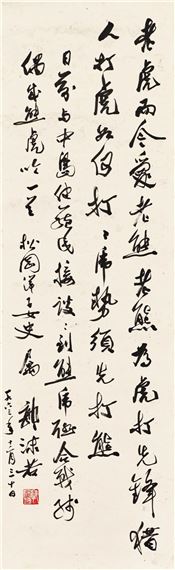 老虎而今爱老熊老熊为虎打先锋猎
人打虎如何打打虎势须先打熊
日前与中岛健藏氏接谈谈到熊虎
偶成熊虎吟一首 松冈洋子女史属
郭沫若
一九六三年十一月三十日